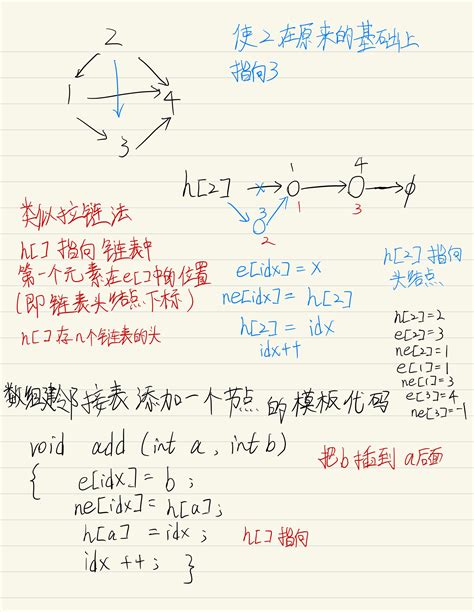 2
使2在原来的基础上
指向3
1
4
3
h[2]
x
1
4
φ
3
1
3
2
类似拉链法
h[] 指向链表中
第一个元素在e[]中的位置
(即链表头结点下标)
h[]存n个链表的头
e[idx]=x
ne[idx]= h[2]
h[2] = idx
idx++
h[2]指向
头结点
h[2]=2
e[2]=3
ne[2]=1
e[1]=1
ne[1]=3
e[3]=4
ne[3]=-1
数组建邻接表添加一个节点的模板代码
void add (int a, int b)
把b插到a后面
{ e[idx]= b ;
ne[idx]= h[a];
h[a] = idx ;
h[]指向
idx ++ ; }